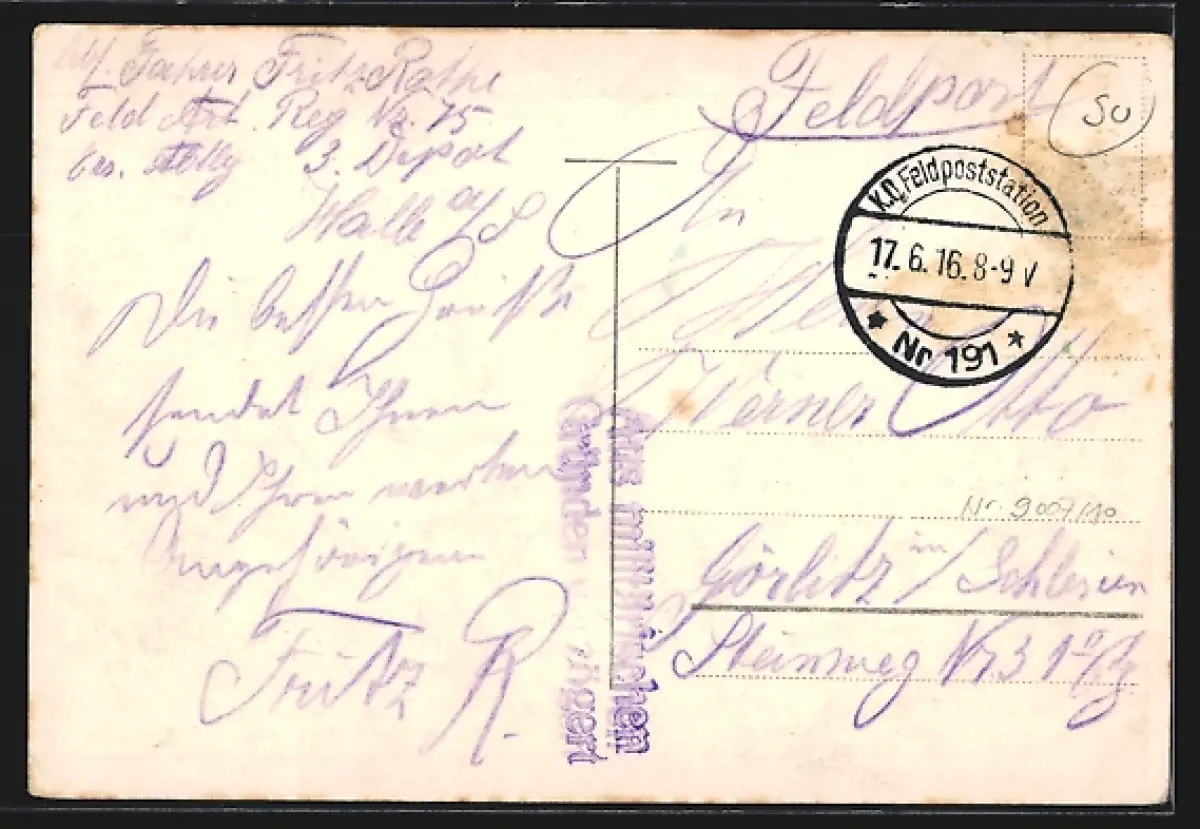 Fahrer Fritz Rothe
Feld Art. Reg. Nr. 75
Ers. Abtlg 3. Depot
Halle a/S
Die besten Grüße
sendet Ihnen
und Ihren werten
Angehörigen
Fritz R.
Feldpost
50
K.D. Feldpoststation
17.6.16.8-9V
* Nr 191 *
An
Otto
Nr. 9007/10
Görlitz in/Schlesien
Steinweg Nr. 3
Aus militärischen
Gründen verzögert